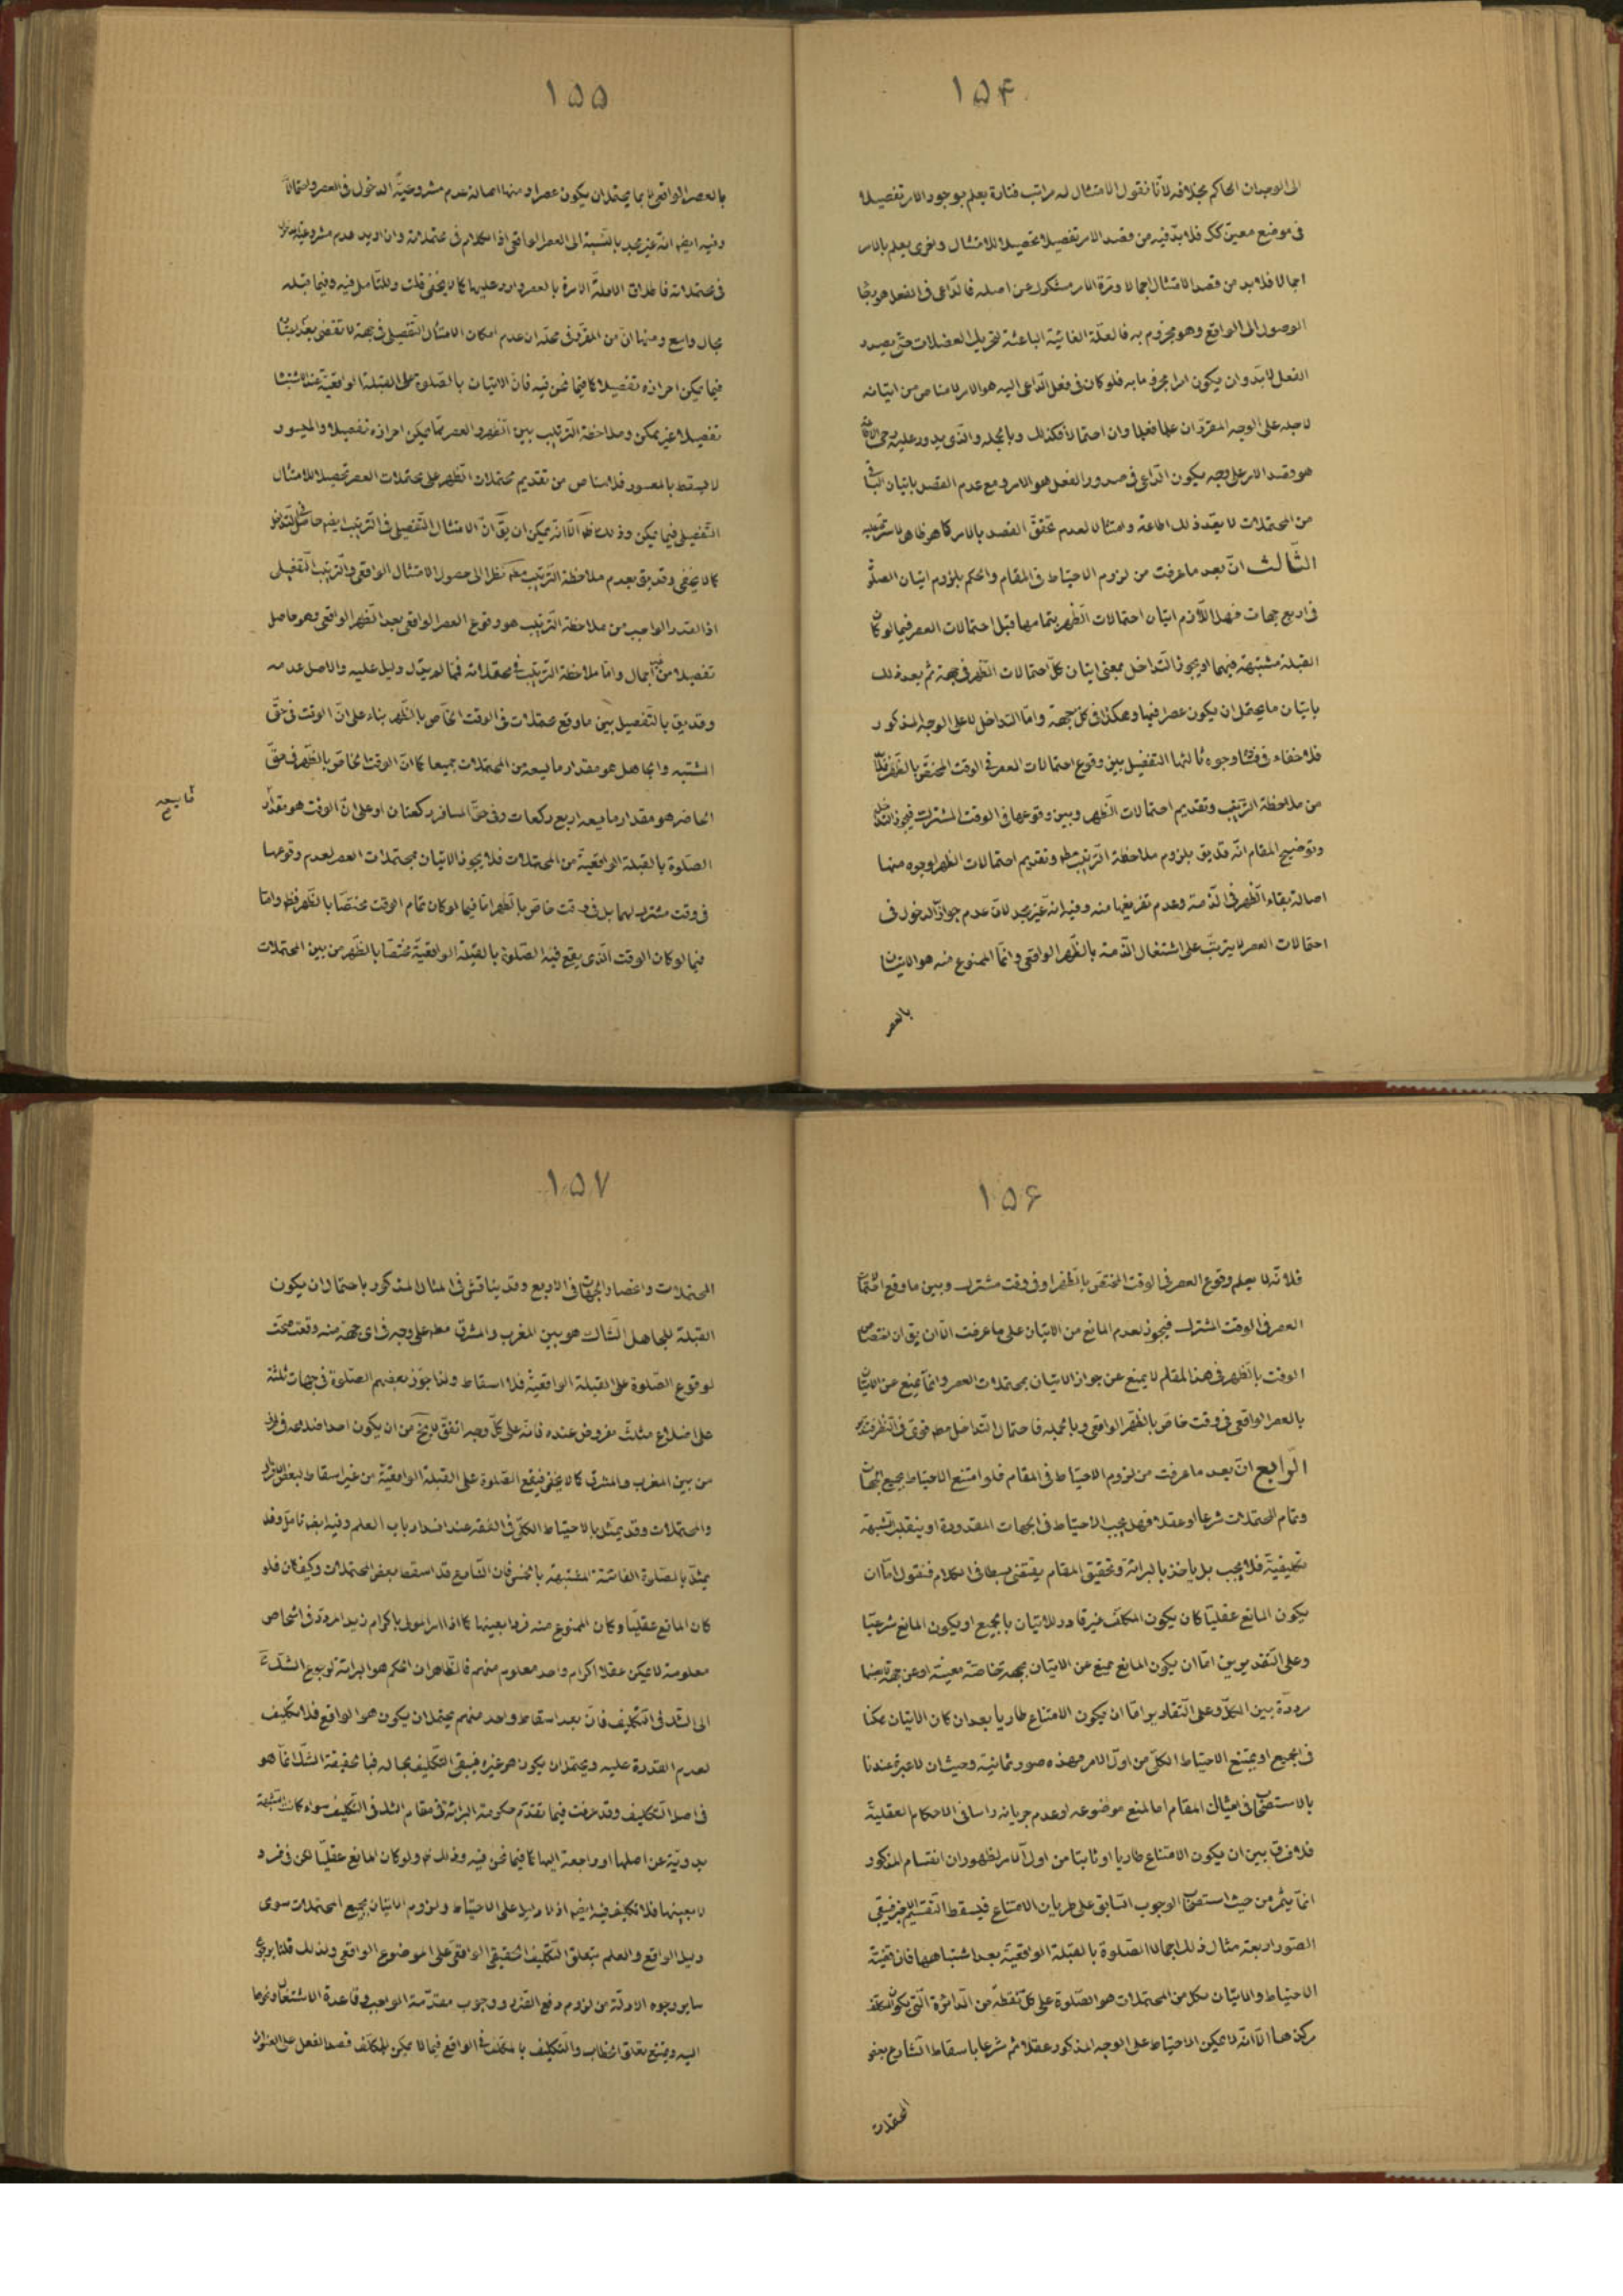 ۱۵۴
الی الوجدان الحاکم بخلافه لانا نقول الامتثال له مراتب فتارة یعلم بوجود الامر تفصیلا
فی موضع معین کک فلا بد فیه من قصد الامر تفصیلا تحصیلا للامتثال واخری یعلم بالامر
اجمالا فلا بد من قصد الامتثال اجمالا ومرة الامر مشکوک عن اصله فالداعی فی الفعل هو رجا
الوصول الی الواقع وهو مجزوم به فالعلة الغائیة الباعثة لتحریک العضلات حتی یصدر
الفعل لا بد وان یکون امرا مجزوما به فلو کان فی فعل الداعی الیه هو الامر لا مناص من اتیانه
لاجله علی الوجه المقرر ان علما فعلما وان احتمالا فکذلک وبالجمله والذی یدور علیه
هو قصد الامر علی وجه یکون الداعی فی صدور الفعل هو الامر ومع عدم القصد باتیان
من المحتملات لا یعد ذلک اطاعة وامتثالا لعدم تحقق القصد بالامر کما هو ظاهر
الثالث ان بعد ما عرفت من لزوم الاحتیاط فی المقام والحکم بلزوم اتیان الصلوة
فی اربع جهات فهل اللازم اتیان احتمالات الظهر بتمامها قبل احتمالات العصر فیما لو کان
القبلة مشتبهة فیهما او یجوز التداخل بمعنی اتیان کل احتمالات الظهر فی جهة ثم بعد ذلک
باتیان ما یحتمل ان یکون عصرا فیها وهکذا فی کل جهة واما التداخل لا علی الوجه المذکور
فلا خفاء فی وجوه ثالثها التفصیل بین وقوع احتمالات العصر فی الوقت المختص بالظهر
من ملاحظة الترتیب وتقدیم احتمالات الظهر وبین وقوعها فی الوقت المشترک فیجوز التداخل
وتوضیح المقام انه قد یق بلزوم ملاحظة الترتیب وتقدیم احتمالات الظهر لوجوه منها
اصالة بقاء الظهر فی الذمة وعدم تفریغها منه وفیه انه غیر مجد لان عدم جواز الدخول فی
احتمالات العصر لا یترتب علی اشتغال الذمة بالظهر الواقعی وانما الممنوع منه هو الاتیان
بالعصر
۱۵۵
بالعصر الواقعی لا بما یحتمل ان یکون عصرا ومنها اصالة عدم مشروعیة الدخول فی العصر
وفیه ایضا انه غیر مجد بالنسبة الی العصر الواقعی اذ الکلام فی محتملاته وان ارید عدم مشروعیة
فی محتملاته فاطلاق الادلة الامرة بالعصر وارد علیها کما لا یخفی قلت وللتامل فیه وفیما قبله
مجال واسع ومنها ان من المقرر فی محله ان عدم امکان الامتثال التفصیلی فی جهة لا تقضی
فیما یمکن احرازه تفصیلا کما فیما نحن فیه فان الاتیان بالصلوة علی القبلة الواقعیة عند الاشتباه
تفصیلا غیر ممکن وملاحظة الترتیب بین الظهر والعصر مما یمکن احرازه تفصیلا والمیسور
لا یسقط بالمعسور فلا مناص من تقدیم محتملات الظهر علی محتملات العصر تحصیلا للامتثال
التفصیلی فیما یمکن وذلک الا انه یمکن ان یق ان الامتثال التفصیلی فی الترتیب ایضا حاصل
کما لا یخفی وقد یق بعدم ملاحظة الترتیب نظرا الی حصول الامتثال الواقعی والترتیب التفصیلی
اذ القدر الواجب من ملاحظة الترتیب هو وقوع العصر الواقعی بعد الظهر الواقعی وهو حاصل
تفصیلا من اجمال واما ملاحظة الترتیب فی محتملاته فمما لم یدل دلیل علیه والاصل عدمه
وقد یق بالتفصیل بین ما وقع محتملات فی الوقت الخاص بالظهر بناء علی ان الوقت فی حق
المشتبه والجاهل هو مقدار ما یسعه من المحتملات جمیعا کما ان الوقت الخاص بالظهر فی حق
الحاضر هو مقدار ما یسعه اربع رکعات وفی حق المسافر رکعتان او علی ان الوقت هو مقدار
الصلوة بالقبلة الواقعیة من المحتملات فلا یجوز الاتیان بمحتملات العصر لعدم وقوعها
فی وقت مشترک لهما بل فی وقت خاص بالظهر اما فیما لو کان تمام الوقت مختصا بالظهر فظ واما
فیما لو کان الوقت الذی یقع فیه الصلوة بالقبلة الواقعیة مختصا بالظهر من بین المحتملات
۱۵۶
فلانه لا یعلم وقوع العصر فی الوقت المختص بالظهر او فی وقت مشترک وبین ما وقع
العصر فی الوقت المشترک فیجوز لعدم المانع من الاتیان علی ما عرفت الا ان یق ان اختصاص
الوقت بالظهر فی هذا المقام لا یمنع عن جواز الاتیان بمحتملات العصر وانما یمنع عن الاتیان
بالعصر الواقعی فی وقت خاص بالظهر الواقعی وبالجمله فاحتمال التداخل مط قوی فی النظر
الرابع ان بعد ما عرفت من لزوم الاحتیاط فی المقام فلو امتنع الاحتیاط بجمیع الجهات
وتمام المحتملات شرعا او عقلا فهل یجب الاحتیاط فی الجهات المقدورة او ینقلب الشبهة
تکلیفیة فلا یجب بل یاخذ بالبرائة وتحقیق المقام یقتضی بسطا فی الکلام فنقول اما ان
یکون المانع عقلیا کان یکون المکلف غیر قادر للاتیان بالجمیع او یکون المانع شرعیا
وعلی التقدیرین اما ان یکون المانع یمنع عن الاتیان بجهة خاصة معینة او عن جهة
مرددة بین الکل وعلی التقادیر اما ان یکون الامتناع طاریا بعد ان کان الاتیان ممکنا
فی الجمیع او یمتنع الاحتیاط الکلی من اول الامر فهذه صور ثمانیة وحیث ان لا عبرة عندنا
بالاستصحاب فی امثال المقام اما لمنع موضوعه او عدم جریانه راسا فی الاحکام العقلیة
فلا فرق بین ان یکون الامتناع طاریا او ثابتا من اول الامر لظهور ان انقسام المذکور
انما یثمر من حیث استصحاب الوجوب السابق علی طریان الامتناع فیسقط التقسیم الاخیر فیبقی
الصور اربعة مثال ذلک اجمالا الصلوة بالقبلة الواقعیة بعد اشتباهها فان قضیة
الاحتیاط والاتیان بکل من المحتملات هو الصلوة علی کل نقطة من الدائرة التی یکون المکلف
مرکزها الا انه لا یمکن الاحتیاط علی الوجه المذکور عقلا ثم شرعا باسقاط الشارع بعض
المحتملات
۱۵۷
المحتملات واقتصار الجهات فی الاربع وقد یناقش فی المثال المذکور باحتمال ان یکون
القبلة للجاهل الشاک هو بین المغرب والمشرق مط علی وجه فی ای جهة منه وقعت صحت
لوقوع الصلوة علی القبلة الواقعیة فلا اسقاط ولذا جوز بعضهم الصلوة فی جهات ثلثة
علی اضلاع مثلث مفروض عنده فانه علی کل وجه اتفق لا یخ من ان یکون احد اضلاعه
من بین المغرب والمشرق کما لا یخفی فیقع الصلوة علی القبلة الواقعیة من غیر اسقاط لبعض
والمحتملات وقد یمثل بالاحتیاط الکلی فی الفقه عند انسداد باب العلم وفیه ایضا تامل وقد
یمثل بالصلوة الفائتة المشتبهة بالخمس فان الشارع قد اسقط بعض المحتملات وکیف کان فلو
کان المانع عقلیا وکان الممنوع منه فردا بعینها کما اذا امر المولی باکرام زید المردد فی اشخاص
معلومة لا یمکن عقلا اکرام واحد معلوم منهم فالظاهر ان الحکم هو البرائة لرجوع الشک
الی الشک فی التکلیف فان بعد اسقاط واحد منهم یحتمل ان یکون هو الواقع فلا تکلیف
لعدم القدرة علیه ویحتمل ان یکون هو غیره فیبقی التکلیف بحاله فبالحقیقة الشک انما هو
فی اصل التکلیف وقد عرفت فیما تقدم حکومة البرائة فی مقام الشک فی التکلیف سواء کانت الشبهة
بدویة عن اصلها او راجعة الیها کما فیما نحن فیه وذلک ظ ولو کان المانع عقلیا لکن فی فرد
لا بعینها فلا تکلیف فیه ایضا اذ لا دلیل علی الاحتیاط ولزوم الاتیان بجمیع المحتملات سوی
دلیل الواقع والعلم بتعلق التکلیف الحقیقی الواقعی علی الموضوع الواقعی ولذلک قلنا برجوع
سایر وجوه الادلة من لزوم دفع الضرر ووجوب مقدمة الواجب وقاعدة الاشتغال ونحوها
الیه ویمتنع تعلق الخطاب والتکلیف بالمکلف فی الواقع فیما لا یمکن للمکلف قصد الفعل علی العنوان